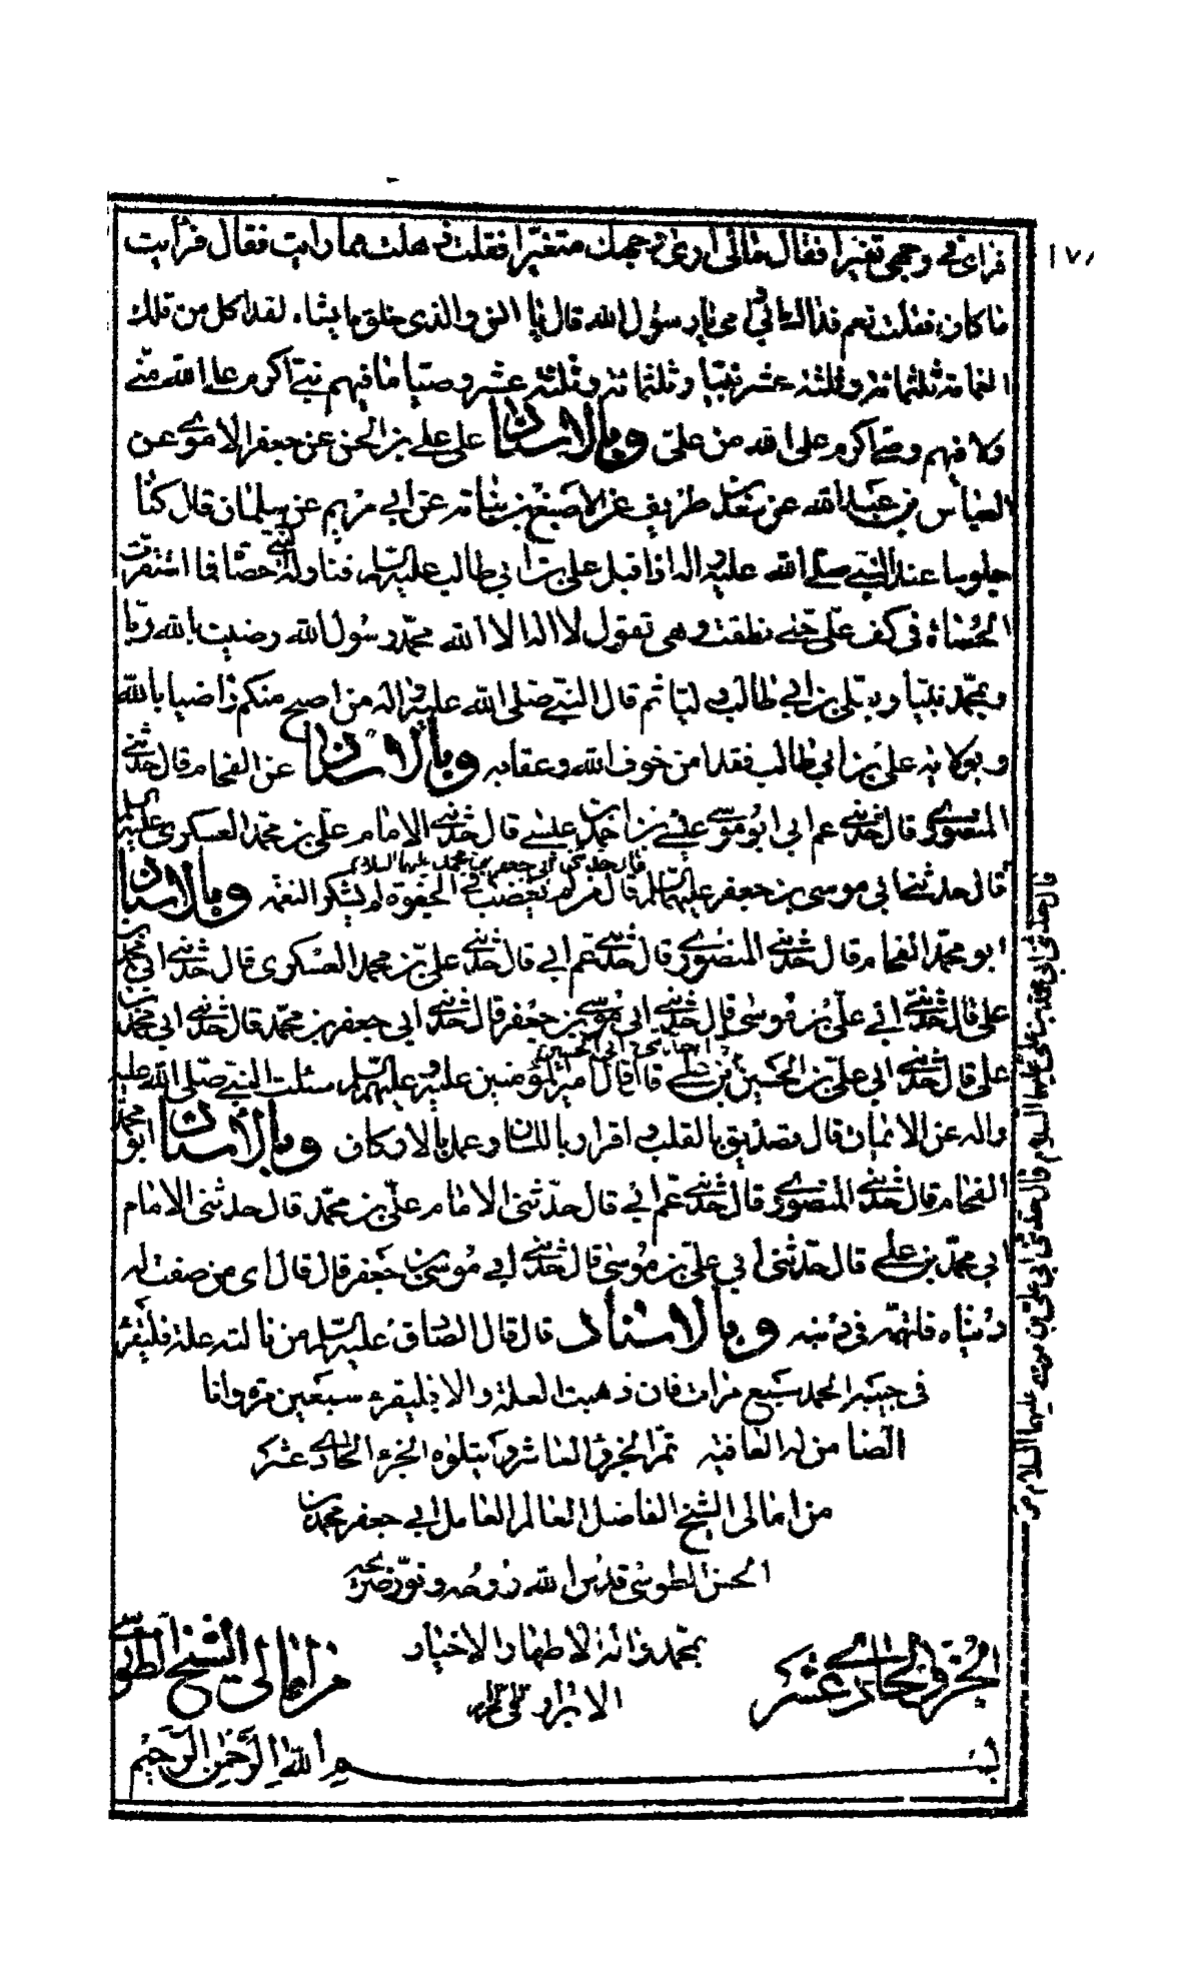 فرأى في وجهي تغيرا فقال مالي ارى وجهك متغيرا فقلت ذهلت مما رايت فقال فرايت
ما كان فقلت نعم فداك ابي و امي يا رسول الله قال يا انس والذي خلق ما يشاء لقد اكل من تلك
الغمامة ثلثمائة وثلثة عشر نبيا وثلثمائة وثلثة عشر وصيا ما فيهم نبي اكرم على الله مني
ولا فيهم وصي اكرم على الله من علي وبالاسناد علي علي بن الحسن عن جعفر الاموي عن
العباس بن عبد الله عن سعد بن طريف عن الاصبغ بن نباتة عن ابي مريم عن سلمان قال كنا
جلوسا عند النبي صلى الله عليه واله اذ اقبل علي بن ابي طالب عليه السلم فناوله النبي حصاة فما استقرت
الحصاة في كف علي حتى نطقت وهي تقول لا اله الا الله محمد رسول الله رضيت بالله ربا
وبمحمد نبيا وبعلي بن ابي طالب وليا ثم قال النبي صلى الله عليه واله من اصبح منكم راضيا بالله
وبولاية علي بن ابي طالب فقد امن خوف الله وعقابه وبالاسناد عن الفحام قال حدثني
المنصوري قال حدثني عم ابي ابو موسى عيسى بن احمد بن عيسى قال حدثني الامام علي بن محمد العسكري عليه السلم
قال حدثني ابي جعفر بن محمد عليهما السلام
قال حدثنا ابي موسى بن جعفر عليهما السلم قال من لم يغضب في الجفوة لم يشكر النعمة وبالاسناد
ابو محمد الفحام قال حدثني المنصوري قال حدثني عم ابي قال حدثني علي بن محمد العسكري قال حدثني ابي محمد بن
علي قال حدثني ابي علي بن موسى قال حدثني ابي موسى بن جعفر قال حدثني ابي جعفر بن محمد قال حدثني ابي محمد بن
علي قال حدثني ابي علي بن الحسين بن علي قال قال امير المؤمنين عليه وعليهم السلم سئلت النبي صلى الله عليه
واله عن الايمان قال تصديق بالقلب و اقرار باللسان وعمل بالاركان وبالاسناد ابو محمد
الفحام قال حدثني المنصوري قال حدثني عم ابي قال حدثني الامام علي بن محمد قال حدثني الامام
ابي محمد بن علي قال حدثني ابي علي بن موسى قال حدثني ابي موسى بن جعفر قال قال ابي من صفت له
دنياه فاتهمه في دينه وبالاسناد قال قال الصادق عليه السلم من نالته علة فليقرء
في جيبه الحمد سبع مرات فان ذهبت العلة والا فليقرء سبعين مرة وانا
الضامن له العافية تم الجزؤ العاشر ويتلوه الجزء الحادي عشر
من امالي الشيخ الفاضل العالم العامل ابي جعفر محمد بن
الحسن الطوسي قدس الله روحه ونور ضريحه
بمحمد واله الاطهار الاخيار
الابرار
الجزؤ الحادي عشر من امالي الشيخ الطوسي
بسم الله الرحمن الرحيم
قال حدثني ابي محمد بن علي عليهما السلام قال حدثني ابي علي بن موسى عليهما السلام